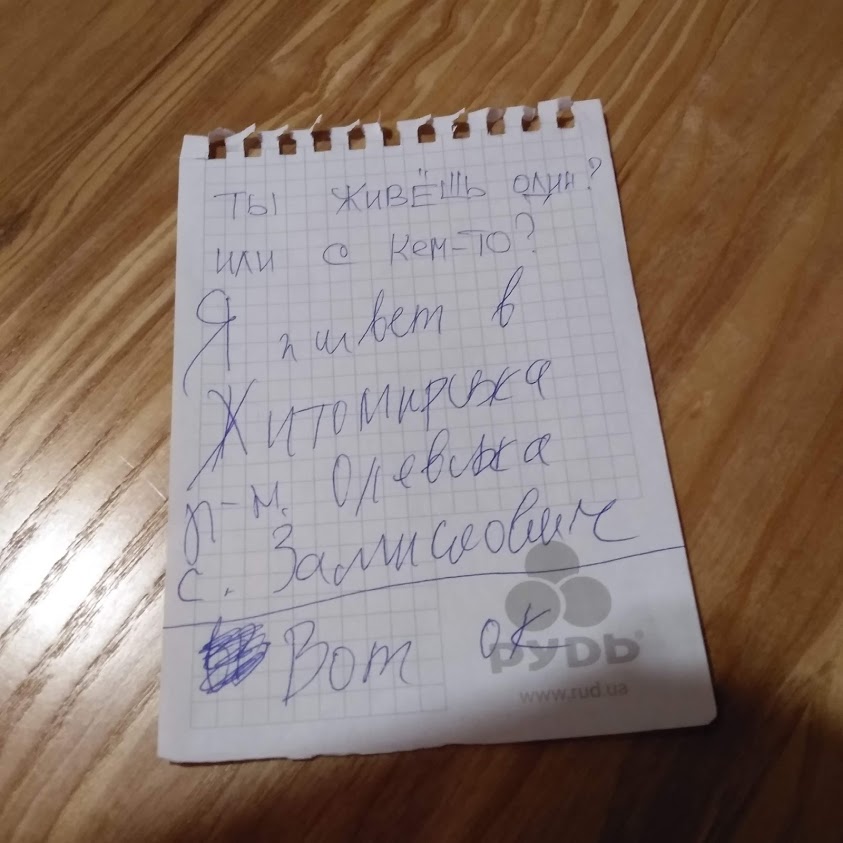 ТЫ ЖИВЁШЬ ОДИН?
ИЛИ С КЕМ-ТО?
Я в
Житомирська
р-н. Олевська
с. Замисловичі
Вот ок
РУДЬ®
www.rud.ua